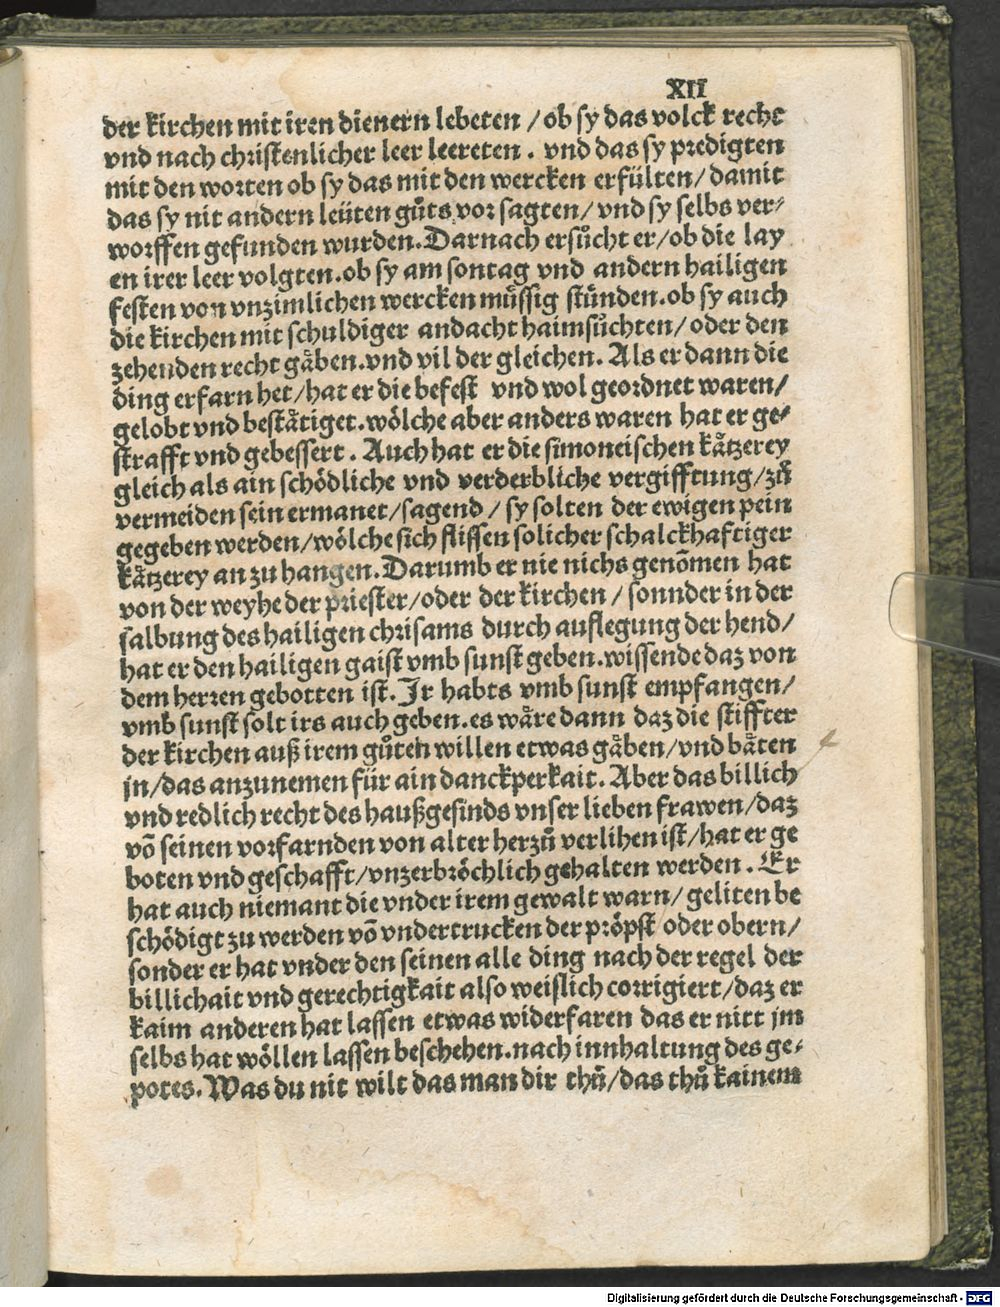 XII
der kirchen mit iren dienern lebeten / ob sy das volck recht
vnd nach christenlicher leer leereten . vnd das sy predigten
mit den worten ob sy das mit den wercken erfülten / damit
das sy nit andern leüten gůts vor sagten / vnd sy selbs ver⸗
worffen gefunden wurden. Darnach ersůcht er / ob die lay
en irer leer volgten. ob sy am sontag vnd andern hailigen
festen von vnzimlichen wercken müssig stůnden. ob sy auch
die kirchen mit schuldiger andacht haimsůchten / oder den
zehenden recht gåben. vnd vil der gleichen. Als er dann die
ding erfarn het / hat er die befest vnd wol geordnet waren /
gelobt vnd beståtiget. wölche aber anders waren hat er ge⸗
strafft vnd gebessert . Auch hat er die simoneischen kåtzerey
gleich als ain schödliche vnd verderbliche vergifftung / zů
vermeiden sein ermanet / sagend / sy solten der ewigen pein
gegeben werden / wölche sich flissen solicher schalckhaftiger
kåtzerey an zu hangen. Darumb er nie nichs genōmen hat
von der weyhe der priester / oder der kirchen / sonnder in der
salbung des hailigen chrisams durch auflegung der hend /
hat er den hailigen gaist vmb sunst geben. wissende daz von
dem herren gebotten ist. Ir habts vmb sunst empfangen /
vmb sunst solt irs auch geben. es wåre dann daz die stiffter
der kirchen auß irem gůten willen etwas gåben / vnd båten
jn / das anzunemen für ain danckperkait. Aber das billich
vnd redlich recht des haußgesinds vnser lieben frawen / daz
vō seinen vorfarnden von alter herzů verlihen ist / hat er ge
boten vnd geschafft / vnzerbröchlich gehalten werden . Er
hat auch niemant die vnder irem gewalt warn / geliten be
schödigt zu werden vō vndertrucken der pröpst oder obern /
sonder er hat vnder den seinen alle ding nach der regel der
billichait vnd gerechtigkait also weislich corrigiert / daz er
kaim anderen hat lassen etwas widerfaren das er nitt jm
selbs hat wöllen lassen beschehen. nach innhaltung des ge⸗
potes. Was du nit wilt das man dir thů / das thů kainem
Digitalisierung gefördert durch die Deutsche Forschungsgemeinschaft - DFG